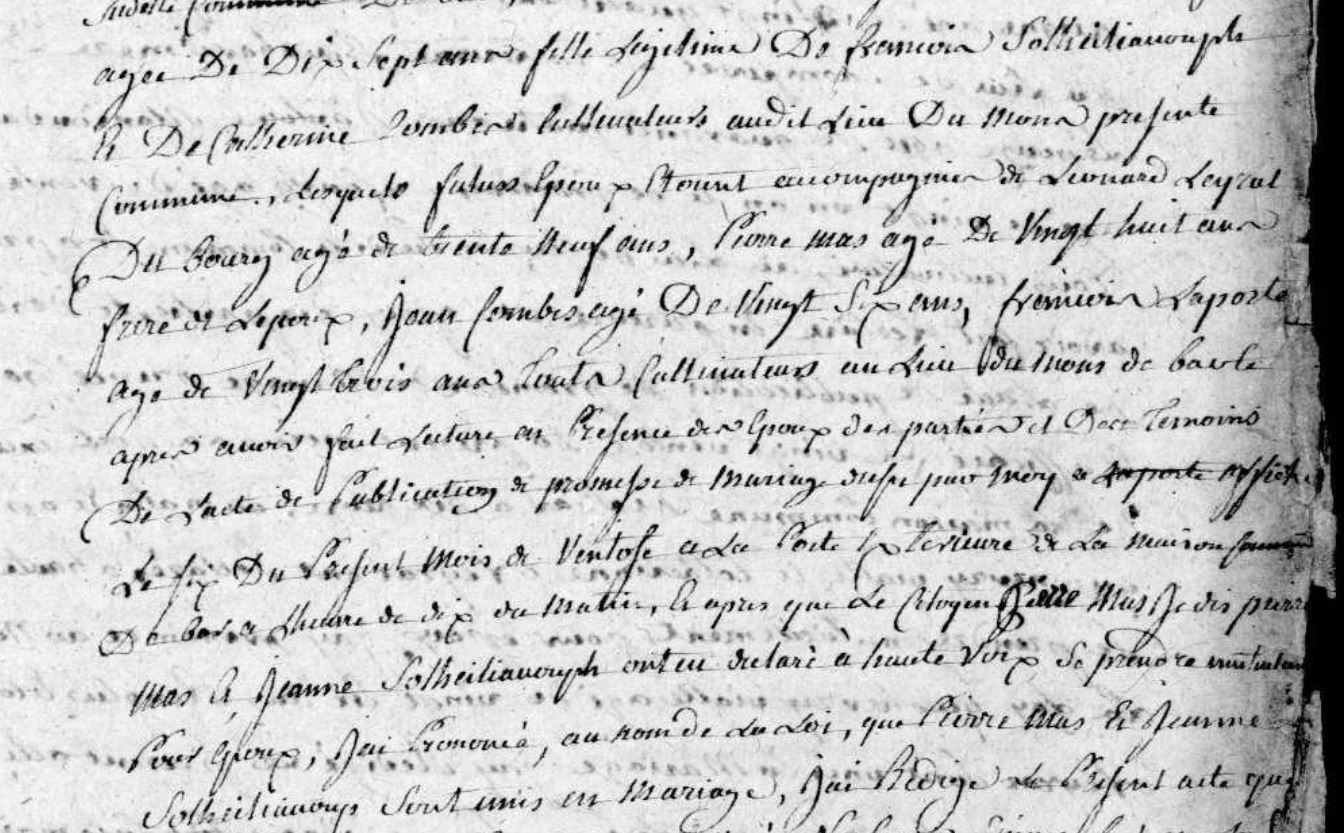 agée De Dix Sept ans fille Legitime De francois Solheiliavouph
Et De Catherine Combes Cultivateurs audit Lieu Du Mons presente
Commune, Lesquels futurs Epoux Etoient accompagnies de Leonard Leyrat
Du Bourg agé de trente Neuf ans, Pierre mas agé De Vingt huit ans
frere de Lepoux, Jean Combes agé De Vingt Six ans, francois Laporte
age de Vingt trois ans touts Cultivateurs au Lieu du Mons de
apres avoir fait Lecture en Presence des Epoux des parties et Des temoins
De Lacte de Publication de promesse de Mariage dresse par moy a
Le six Du Present Mois de Ventose a La Porte Exterieure de La maison
a Lheure de dix du Matin, Et apres que Le Citoyen Pierre Mas Je dis pierre
Mas Et Jeanne Solheiliavouph ont eu declaré à haute Voix Se prendre
Pour Epoux, Jai Prononcé, au nom de La Loi, que Pierre Mas Et Jeanne
Solheiliavoup Sont unis en Mariage, Jai Redige Le Present acte que